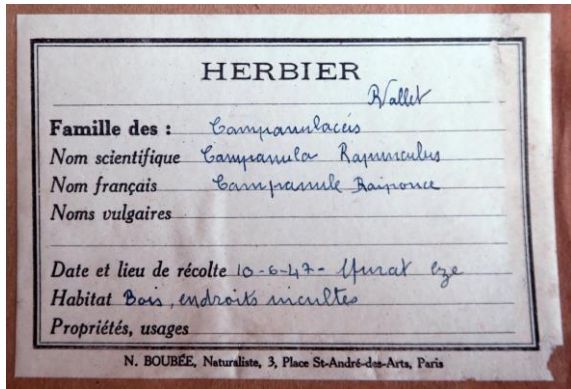 HERBIER
R Vallet
Famille des : Campanulacées
Nom scientifique Campanula Rapunculus
Nom français Campanule Raiponce
Noms vulgaires
Date et lieu de récolte 10-6-47-
Habitat Bois, endroits incultes
Propriétés, usages
N. BOUBÉE, Naturaliste, 3, Place St-André-des-Arts, Paris